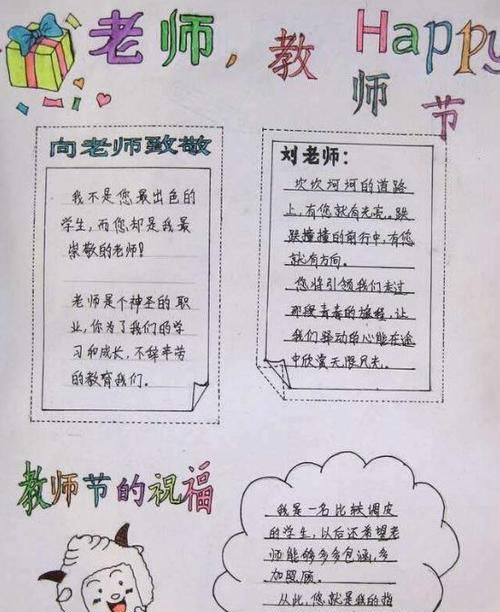 老师，教师节
Happy
向老师致敬
我不是您最出色的
学生，而您却是我最
崇敬的老师！
老师是个神圣的职
业，你为了我们的学
习和成长，不辞辛苦
的教育我们。
刘老师：
坎坎坷坷的道路
上，有您就有光亮。跌
跌撞撞的前行中，有您
就有方向。
您将引领我们走过
那段青春的旅程，让
我们驿动的心能在途
中欣赏无限风光。
教师节的祝福
我是一名比较调皮
的学生，以后还希望老
师能够多多包涵，多
加照顾。
从此，您就是我的指